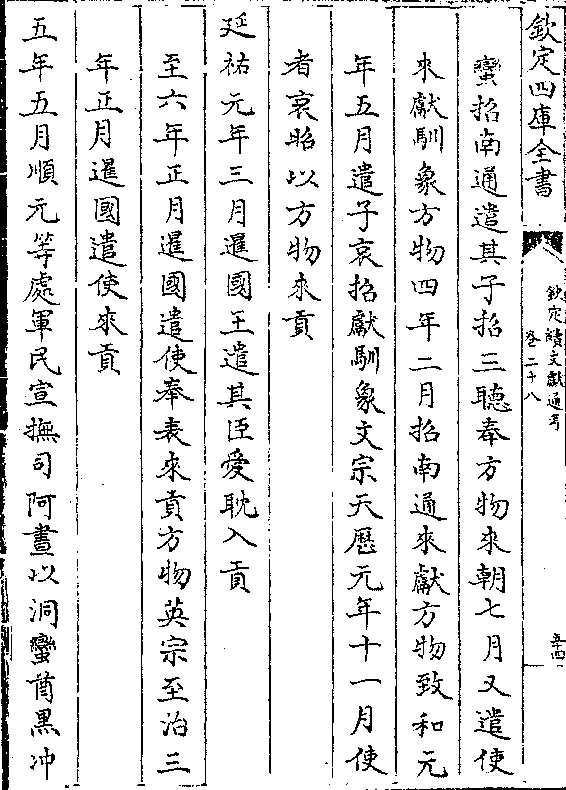 欽定四庫全書
欽定續文獻通考
卷二十八
蠻招南通遣其子招三聽奉方物來朝七月又遣使
來獻馴象方物四年二月招南通來獻方物致和元
年五月遣子哀招獻馴象文宗天厯元年十一月使
者哀昭以方物來貢
延祐元年三月暹國王遣其臣愛耽入貢
至六年正月暹國遣使奉表來貢方物英宗至治三
年正月暹國遣使來貢
五年五月順元等處軍民宣撫司阿晝以洞蠻酋黑冲